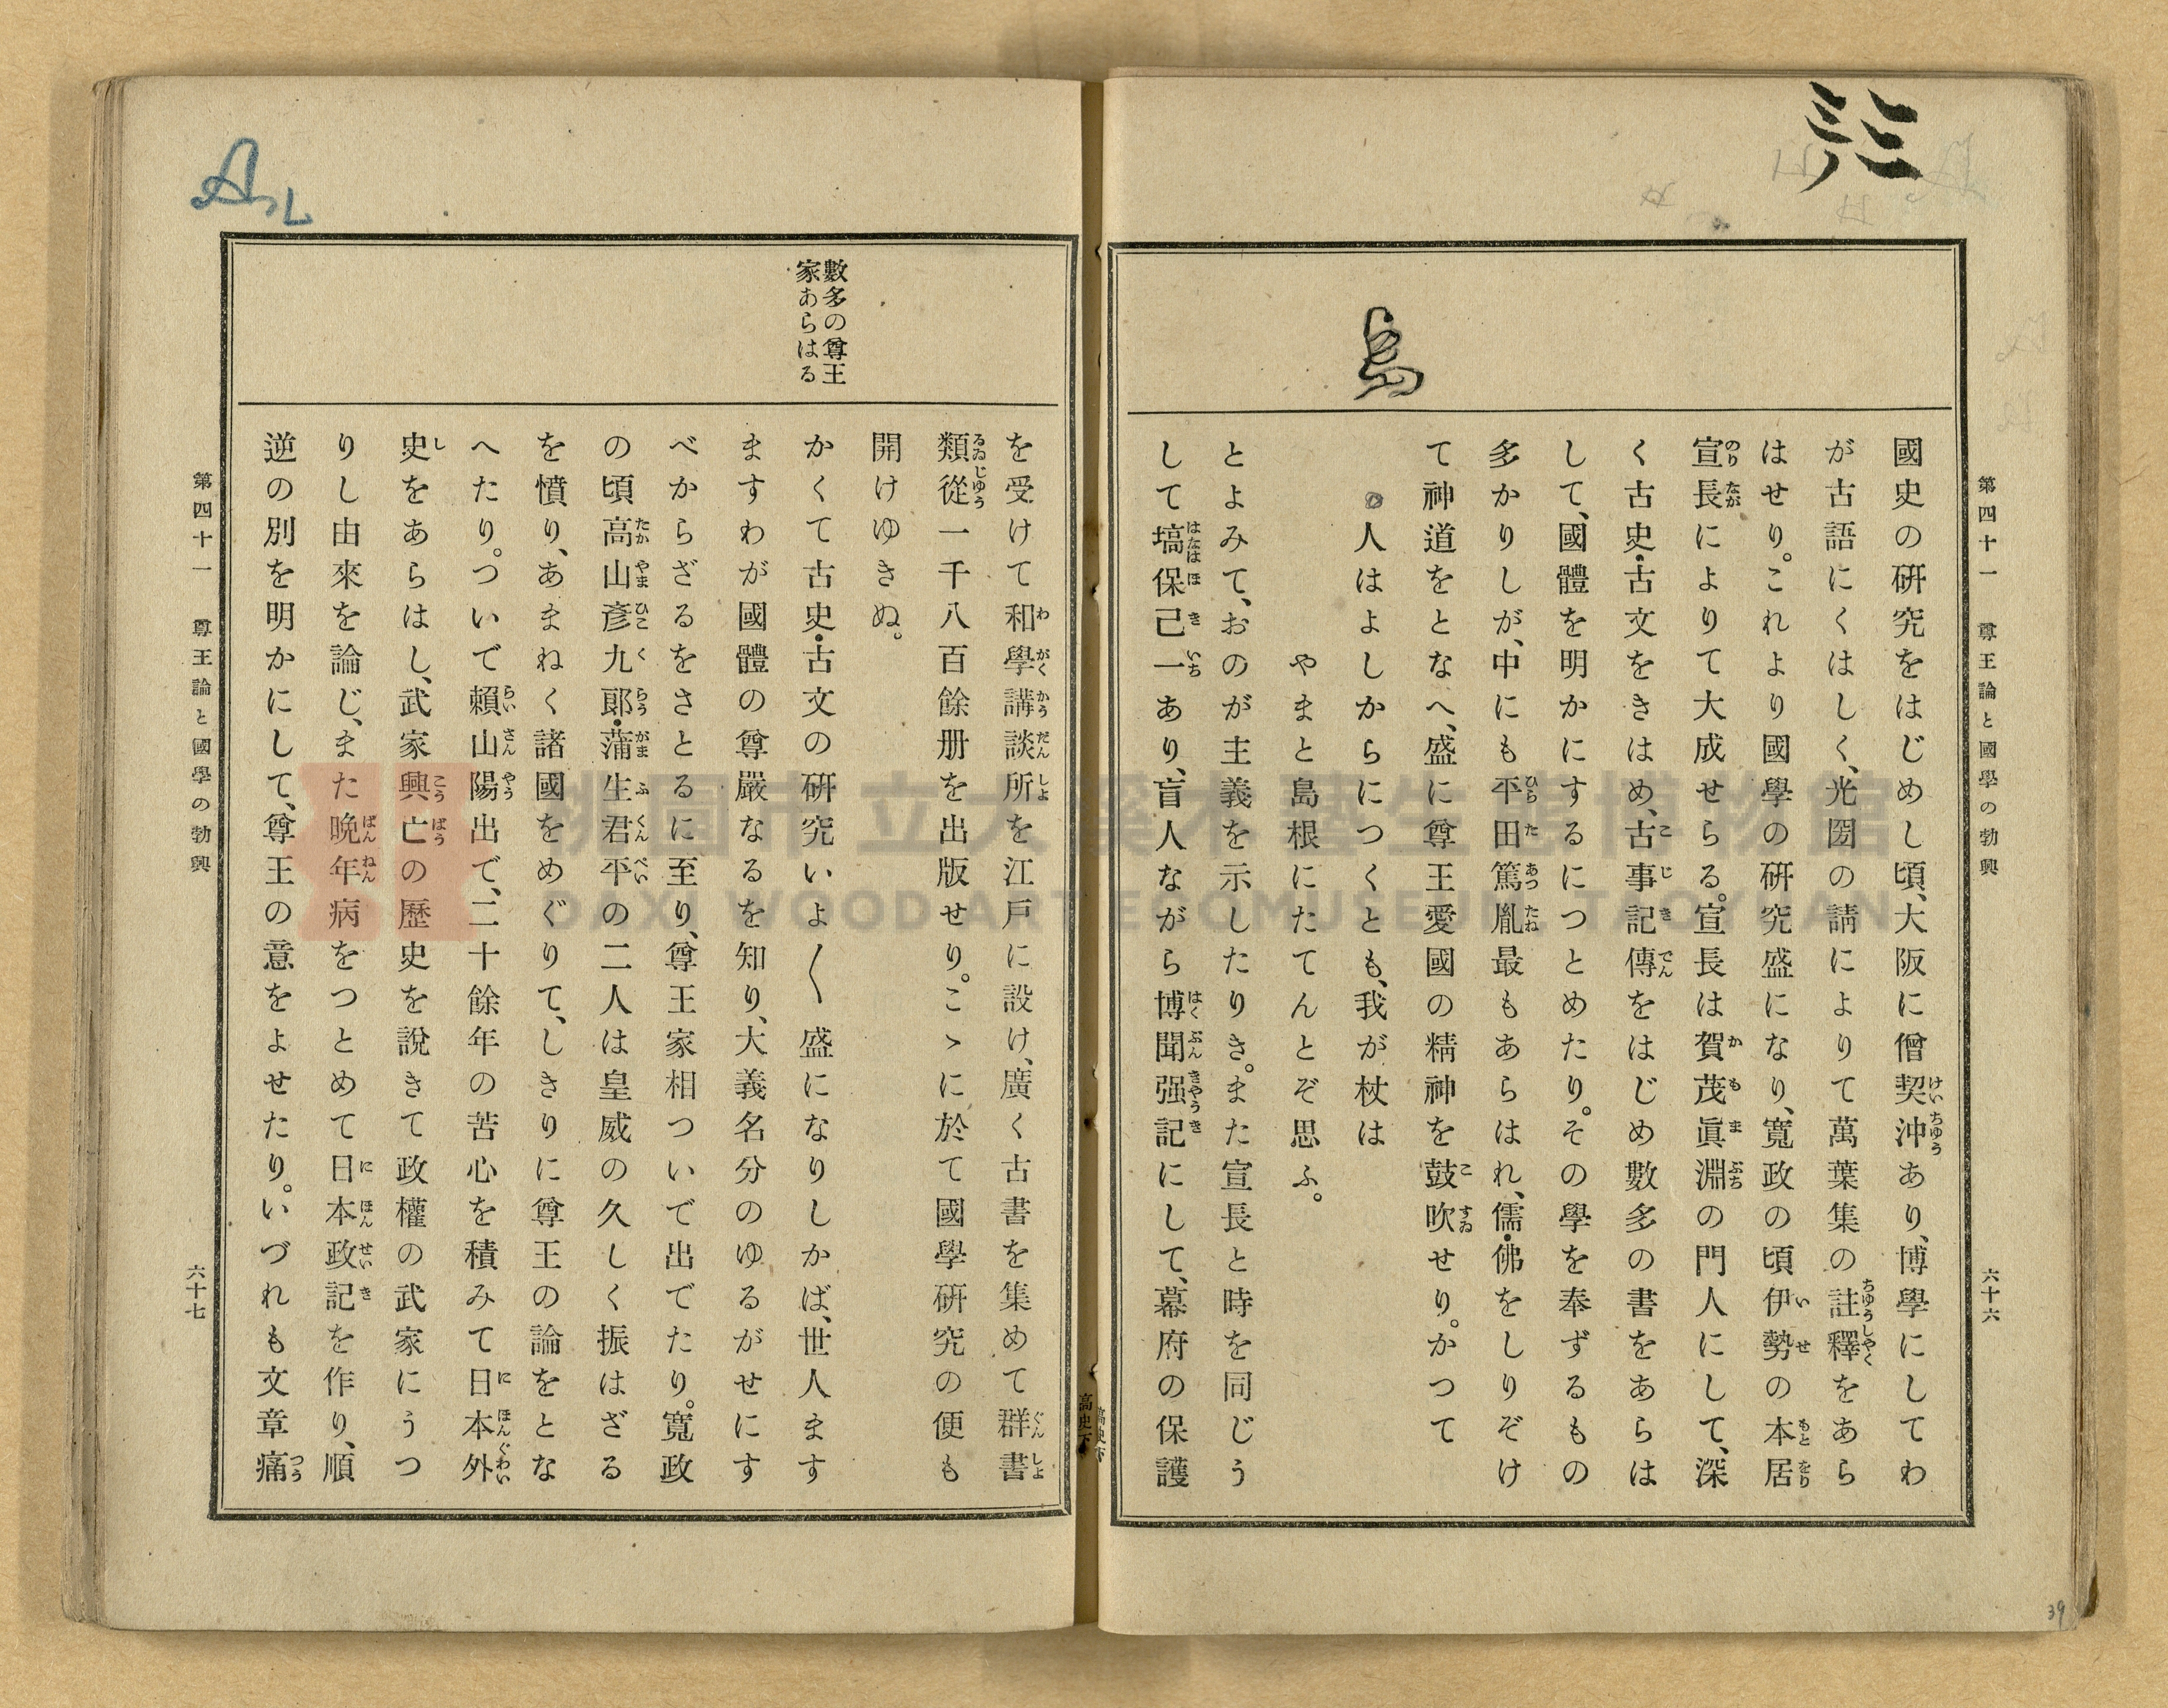 第四十一 尊王論と國學の勃興
六十六
國史の硏究をはじめし頃、大阪に僧契沖あり、博學にしてわ
が古語にくはしく、光圀の請によりて萬葉集の註釋をあら
はせり。これより國學の硏究盛になり、寬政の頃伊勢の本居
宣長によりて大成せらる。宣長は賀茂眞淵の門人にして、深
く古史・古文をきはめ、古事記傳をはじめ數多の書をあらは
して、國體を明かにするにつとめたり。その學を奉ずるもの
多かりしが、中にも平田篤胤最もあらはれ、儒・佛をしりぞけ
て神道をとなへ、盛に尊王愛國の精神を鼓吹せり。かつて
人はよしからにつくとも、我が杖は
やまと島根にたてんとぞ思ふ。
とよみて、おのが主義を示したりき。また宣長と時を同じう
して塙保己一あり、盲人ながら博聞强記にして、幕府の保護
島
高史下
高史下
を受けて和學講談所を江戶に設け、廣く古書を集めて群書
類從一千八百餘册を出版せり。こゝに於て國學硏究の便も
開けゆきぬ。
數多の尊王
家あらはる
かくて古史・古文の硏究いよ〱盛になりしかば、世人ます
ますわが國體の尊嚴なるを知り、大義名分のゆるがせにす
べからざるをさとるに至り、尊王家相ついで出でたり。寬政
の頃高山彥九郞・蒲生君平の二人は皇威の久しく振はざる
を憤り、あまねく諸國をめぐりて、しきりに尊王の論をとな
へたり。ついで賴山陽出で、二十餘年の苦心を積みて日本外
史をあらはし、武家興亡の歷史を說きて政權の武家にうつ
りし由來を論じ、また晩年病をつとめて日本政記を作り、順
逆の別を明かにして、尊王の意をよせたり。いづれも文章痛
第四十一 尊王論と國學の勃興
六十七
39
桃園市立大溪木藝生態博物館
DAXI WOOD ART ECOMUSEUM, TAOYUAN